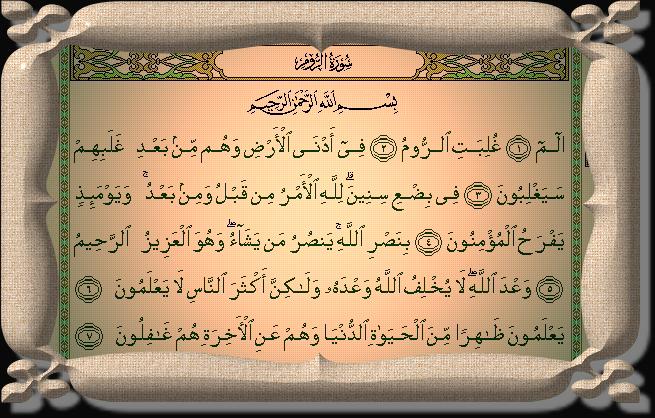 سُورَةُ الرُّومِ
بِسْمِ اللَّهِ الرَّحْمَٰنِ الرَّحِيمِ
الٓمٓ ١ غُلِبَتِ ٱلرُّومُ ٢ فِىٓ أَدْنَى ٱلْأَرْضِ وَهُم مِّنۢ بَعْدِ غَلَبِهِمْ
سَيَغْلِبُونَ ٣ فِى بِضْعِ سِنِينَ ۗ لِلَّهِ ٱلْأَمْرُ مِن قَبْلُ وَمِنۢ بَعْدُ ۚ وَيَوْمَئِذٍ
يَفْرَحُ ٱلْمُؤْمِنُونَ ٤ بِنَصْرِ ٱللَّهِ ۚ يَنصُرُ مَن يَشَآءُ ۖ وَهُوَ ٱلْعَزِيزُ ٱلرَّحِيمُ
٥ وَعْدَ ٱللَّهِ ۖ لَا يُخْلِفُ ٱللَّهُ وَعْدَهُۥ وَلَٰكِنَّ أَكْثَرَ ٱلنَّاسِ لَا يَعْلَمُونَ ٦
يَعْلَمُونَ ظَٰهِرًا مِّنَ ٱلْحَيَوٰةِ ٱلدُّنْيَا وَهُمْ عَنِ ٱلْأَخِرَةِ هُمْ غَٰفِلُونَ ٧